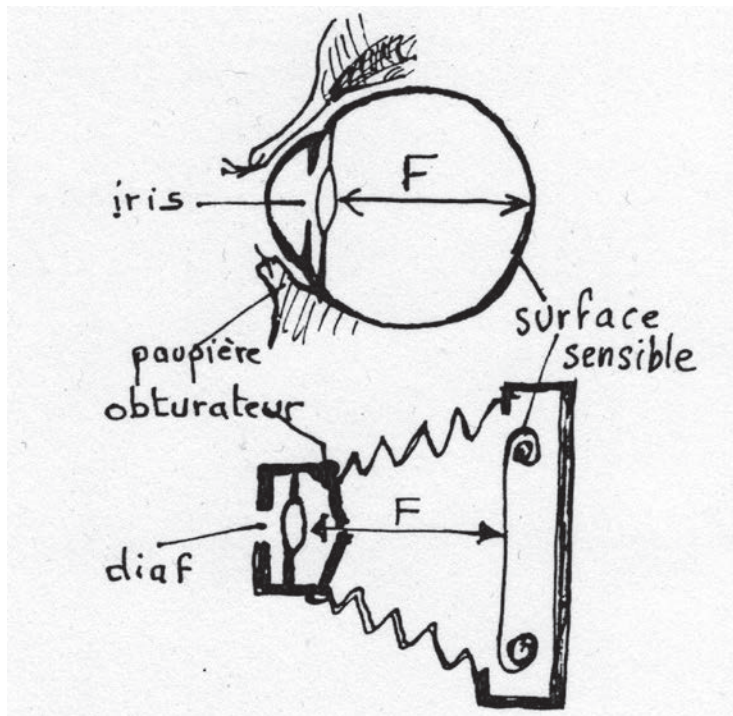 F
iris
surface
sensible
paupière
obturateur
F
diaf